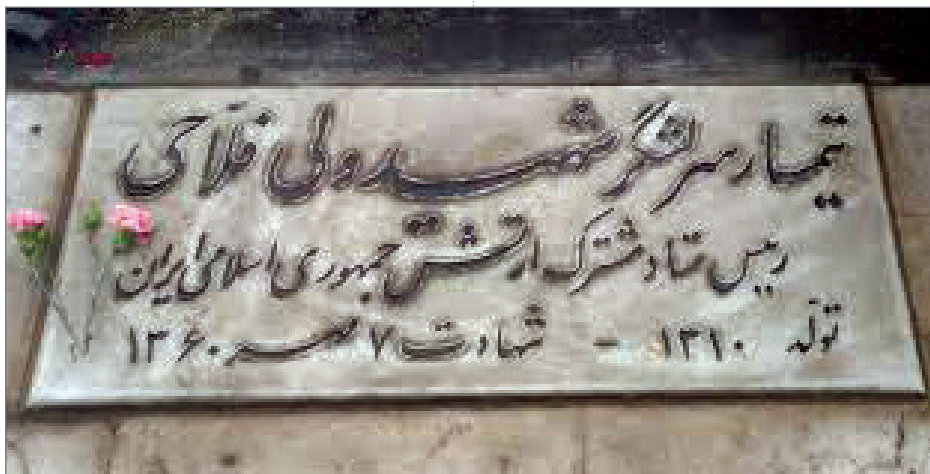 تیمسار سرلشگر شهید ولی فلاحی
رئیس ستاد مشترک ارتش جمهوری اسلامی ایران
تولد ۱۳۱۰ - شهادت ۷ مهر ۱۳۶۰